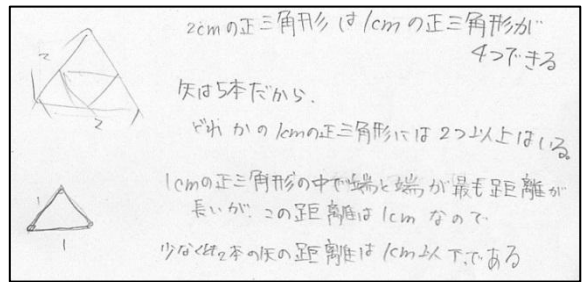 2cmの正三角形は1cmの正三角形が
4つできる
2
2
矢は5本だから、
どれかの1cmの正三角形には2つ以上はいる。
1cmの正三角形の中で端と端が最も距離が
長いが、この距離は1cmなので
少なくとも2本の矢の距離は1cm以下である
1
1